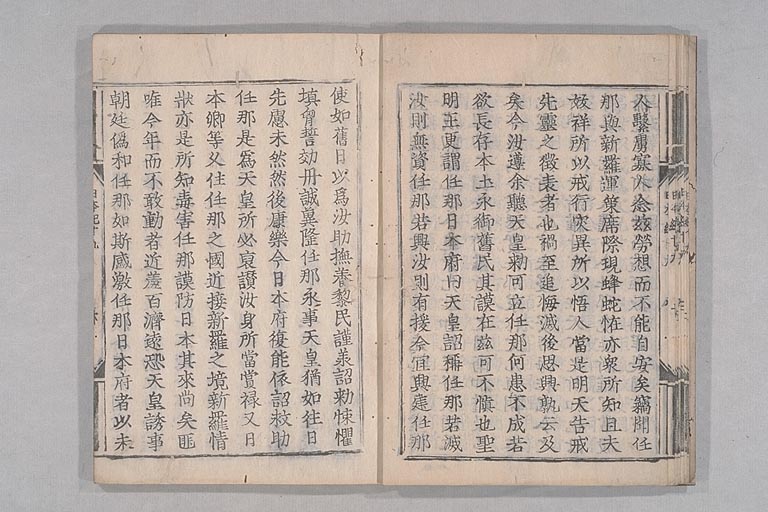 人繫虜寡人念茲勞想而不能自安矣竊聞任
那與新羅運策席際現蜂蛇恠亦衆所知且夫
妖祥所以戒行災異所以悟人當是明天告戒
先靈之徵表者也禍至追悔滅後思興孰云及
矣今汝遵余聽天皇勅可立任那何患不成若
欲長存本土永御舊民其謨在茲可不慎也聖
明王更謂任那日本府曰天皇詔稱任那若滅
汝則無資任那若興汝則有援今宜興建任那
使如舊日以爲汝助撫養黎民謹義詔勅悚懼
填胷誓効丹誠冀隆任那永事天皇猶如往日
先慮未然然後康樂今日本府復能依詔救助
任那是爲天皇所必哀讃汝身所當賞禄又日
本卿等久住任那之國近接新羅之境新羅情
狀亦是所知毒害任那謨防日本其來尚矣匪
唯今年而不敢動者近羞百濟遠恐天皇誘事
朝廷僞和任那如斯感激任那日本府者以未
日本紀十九